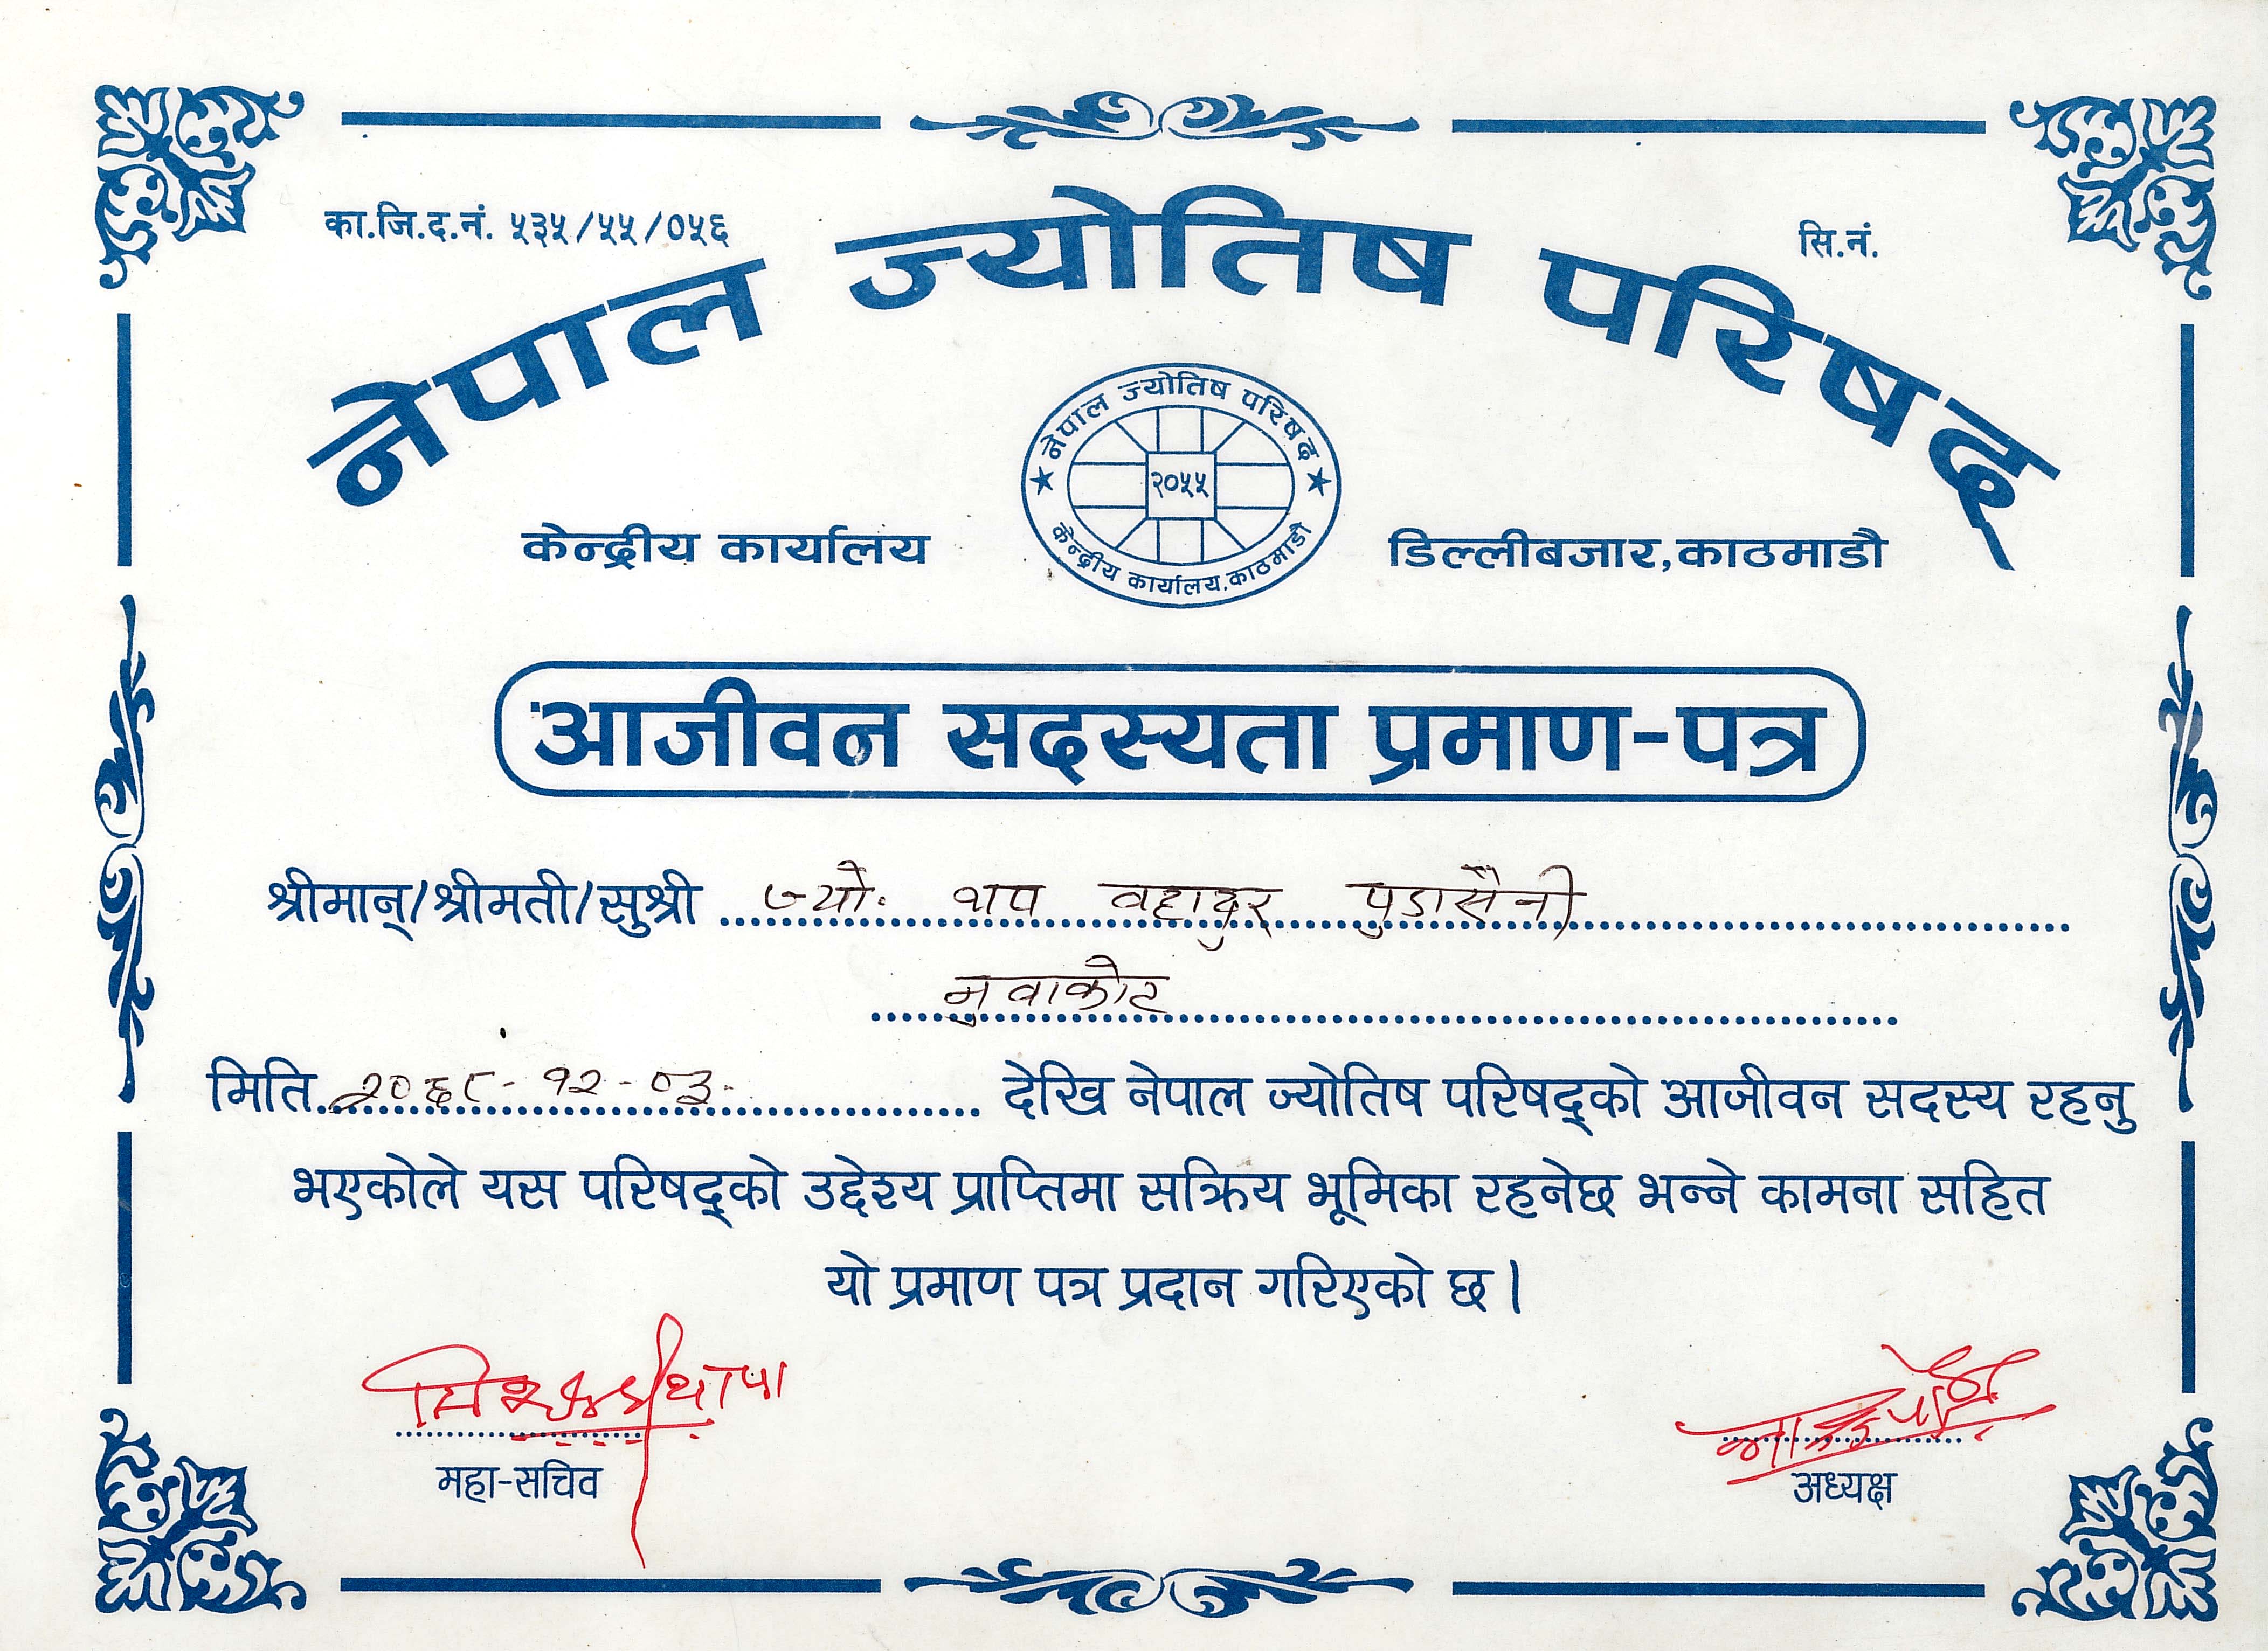 का.जि.द.नं. ५३५/५५/०५६
सि.नं.
नेपाल ज्योतिष परिषद्
नेपाल ज्योतिष परिषद
२०५५
केन्द्रीय कार्यालय, काठमाडौ
केन्द्रीय कार्यालय
डिल्लीबजार,काठमाडौ
आजीवन सदस्यता प्रमाण-पत्र
श्रीमान्/श्रीमती/सुश्री ज्यो. थाप वहादुर पुडासैनी
नुवाकोट
मिति २०६८-१२-०३ देखि नेपाल ज्योतिष परिषद्को आजीवन सदस्य रहनु
भएकोले यस परिषद्को उद्देश्य प्राप्तिमा सक्रिय भूमिका रहनेछ भन्ने कामना सहित
यो प्रमाण पत्र प्रदान गरिएको छ।
महा-सचिव
अध्यक्ष